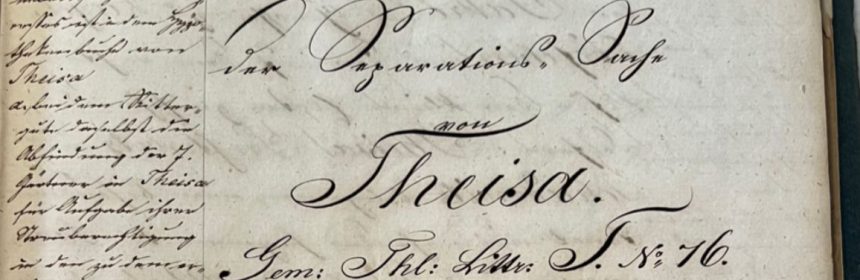 erstes ist in dem Hypo-
thekenbuche von
Theisa
a, bei dem Ritter-
gute daselbst die
Abfindung der 7.
Gärtner in Theisa
für Aufgabe ihrer
Streuberechtigung
in den zu dem er-
der Separations-Sache
von
Theisa.
Gem: Thl: Littr: T. No 76.